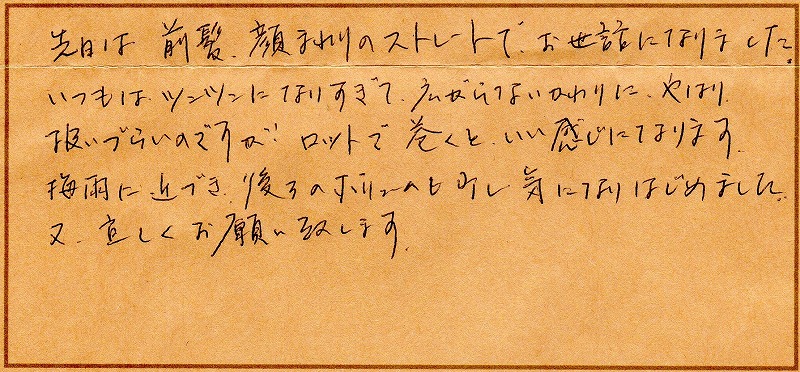 先日は 前髪、顔まわりのストレートで、お世話になりました。
いつもは、ツンツンになりすぎて、広がらないかわりに、やはり、
扱いづらいのですが! ロットで巻くと、いい感じになります。
梅雨に近づき、後ろのボリュームも少し気になりはじめました。
又、宜しくお願い致します。